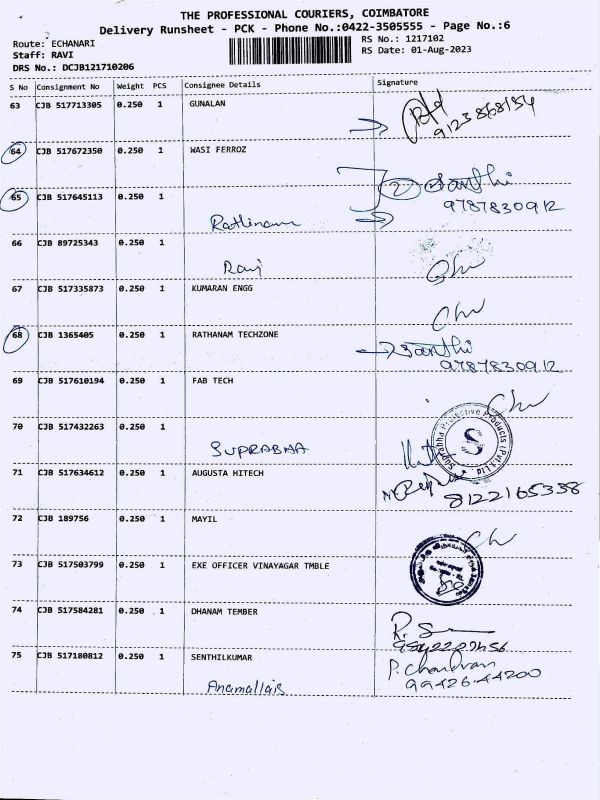 THE PROFESSIONAL COURIERS, COIMBATORE
Delivery Runsheet - PCK - Phone No.:0422-3505555 - Page No.:6
Route: ECHANARI
RS No.: 1217102
Staff: RAVI
RS Date: 01-Aug-2023
DRS No.: DCJB121710206
S No Consignment No Weight PCS Consignee Details Signature
63 CJB 517713305 0.250 1 GUNALAN
9123868134
64 CJB 517672350 0.250 1 WASI FERROZ
65 CJB 517645113 0.250 1
2 Santhi
9787830912
Rathinam
66 CJB 89725343 0.250 1
Ravi
67 CJB 517335873 0.250 1 KUMARAN ENGG
68 CJB 1365405 0.250 1 RATHANAM TECHZONE
Santhi
9787830912
69 CJB 517610194 0.250 1 FAB TECH
70 CJB 517432263 0.250 1
SUPRABHA
Suprabha Protective Products (Pvt.) Ltd
S
71 CJB 517634612 0.250 1 AUGUSTA HITECH
8122165338
72 CJB 189756 0.250 1 MAYIL
73 CJB 517503799 0.250 1 EXE OFFICER VINAYAGAR TMBLE
74 CJB 517584281 0.250 1 DHANAM TEMBER
75 CJB 517180812 0.250 1 SENTHILKUMAR
P. Chandran
99426-44200
Anamallais